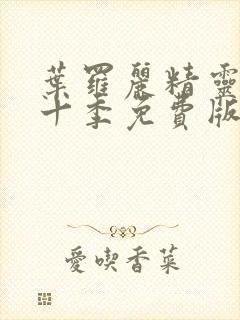 葉羅麗精靈
十季免費版
愛喫香菜